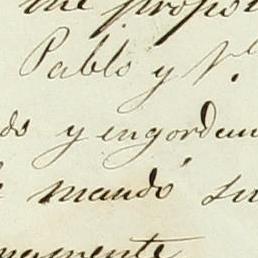 me propo
Pablo y
do y engordan
mandó su
namente